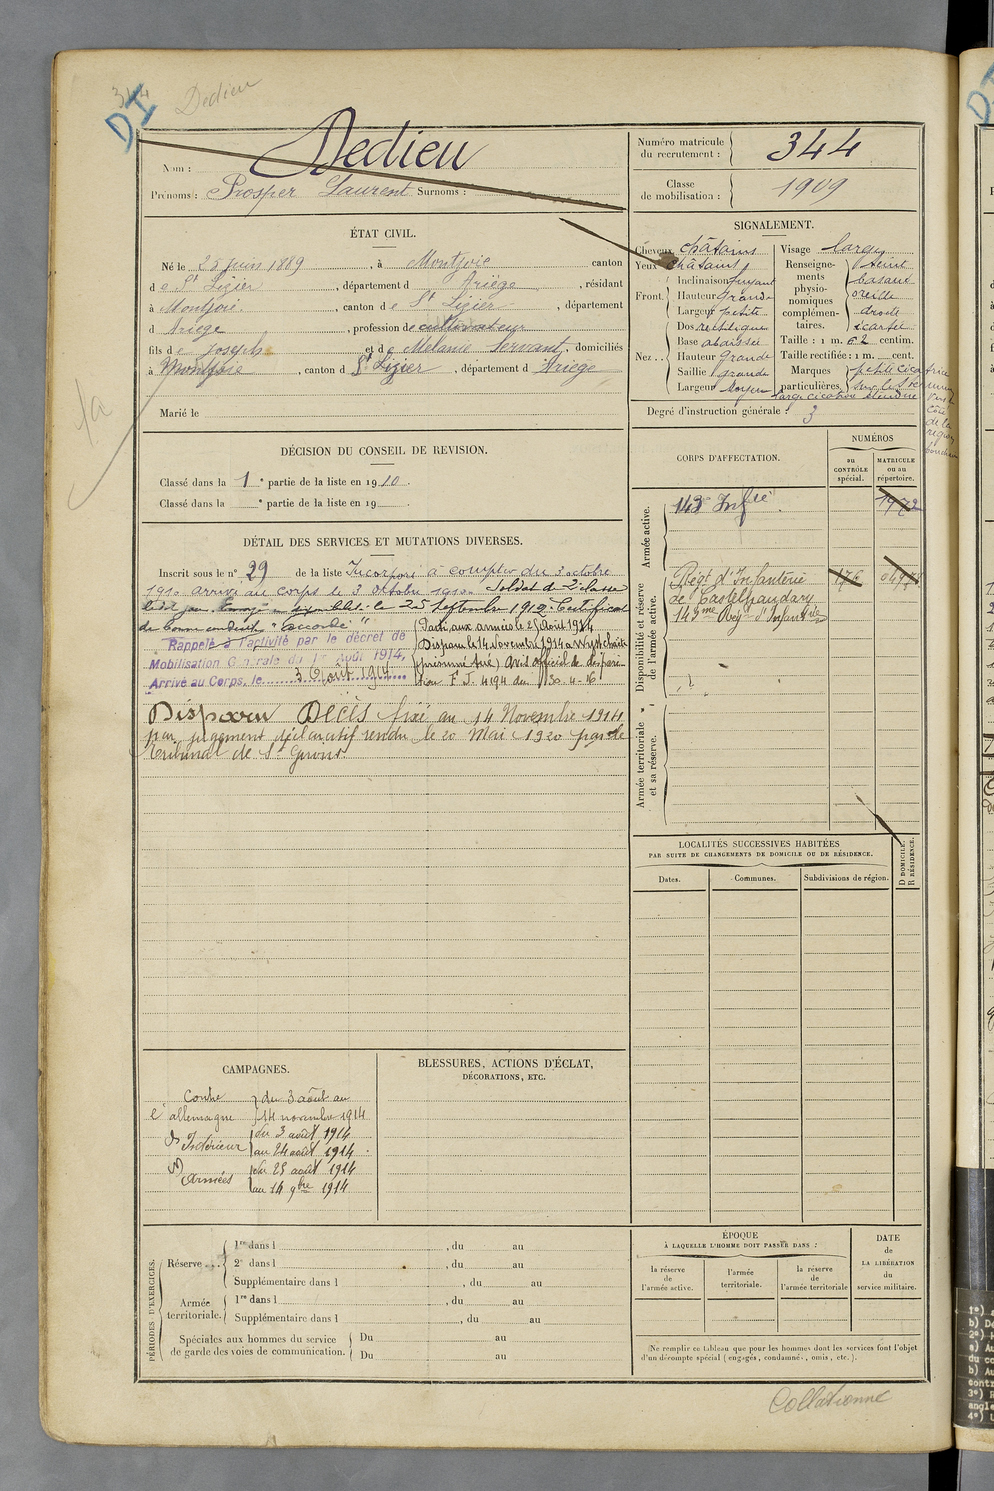 344
DI
Dedieu
Nom : Dedieu
Prénoms : Prosper Laurent Surnoms :
Numéro matricule du recrutement : 344
Classe de mobilisation : 1909
ÉTAT CIVIL.
Né le 25 juin 1889, à Montjoie canton
de St Lizier, département d Ariège, résidant
à Montjoie, canton de St Lizier, département
d Ariege, profession de cultivateur
fils de Joseph et de Mélanie Servant, domiciliés
à Montjoie, canton d St Lizier, département d Ariege
Marié le
SIGNALEMENT.
Cheveux châtains
Yeux châtains
Front. Inclinaison fuyant
Hauteur grande
Largeur petite
Nez... Dos rectiligne
Base abaissée
Hauteur grande
Saillie grande
Largeur Moyen
Visage large
Renseignements physionomiques complémentaires. teint basané oreille droite écartée
Taille : 1 m. 62 centim.
Taille rectifiée : 1 m. cent.
Marques particulières petite cicatrice
large cicatrice
Degré d'instruction générale : 3
DÉCISION DU CONSEIL DE REVISION.
Classé dans la 1e partie de la liste en 1910.
Classé dans la e partie de la liste en 19
CORPS D'AFFECTATION.
NUMÉROS
au CONTRÔLE spécial.
MATRICULE ou au répertoire.
Armée active.
143e Infrie
1972
Disponibilité et réserve de l'armée active.
Régt d'Infanterie
de Castelnaudary
176
143me Rég. d'Infanterie
Armée territoriale et sa réserve.
DÉTAIL DES SERVICES ET MUTATIONS DIVERSES.
Inscrit sous le n° 29 de la liste Incorporé à compter du 3 octobre
1910 arrivé au corps le 3 octobre 1910. Soldat de 2e classe
ledit jour. Envoyé en disponibilité le 25 septembre 1912. Certificat
de bonne conduite "Accordé"
Rappelé à l'activité par le décret de
Mobilisation Générale du 1er Août 1914.
Arrivé au Corps, le 3 Août 1914
Parti aux armées le 25 Août 1914
Disparu le 14 Novembre 1914 à Wystchaëte
(présumé tué) Avis officiel de dispari-
tion F J. 4194 du 30-4-16
Disparu Décès fixé au 14 Novembre 1914
par jugement déclaratif rendu le 20 Mai 1920 par le
Tribunal de St Girons.
LOCALITÉS SUCCESSIVES HABITÉES
PAR SUITE DE CHANGEMENTS DE DOMICILE OU DE RÉSIDENCE.
Dates.
Communes.
Subdivisions de région.
D DOMICILE.
R RÉSIDENCE.
CAMPAGNES.
Contre l'allemagne du 3 août au
14 novembre 1914
Intérieur du 3 août 1914
au 24 août 1914
Armées du 25 août 1914
au 14 9bre 1914
BLESSURES, ACTIONS D'ÉCLAT,
DÉCORATIONS, ETC.
PÉRIODES D'EXERCICES.
Réserve... 1re dans l , du au
2e dans l , du au
Supplémentaire dans l , du au
Armée territoriale. 1re dans l , du au
Supplémentaire dans l , du au
Spéciales aux hommes du service de garde des voies de communication. Du au
Du au
ÉPOQUE
À LAQUELLE L'HOMME DOIT PASSER DANS :
la réserve de l'armée active.
l'armée territoriale.
la réserve de l'armée territoriale
DATE de LA LIBÉRATION du service militaire.
Ne remplir ce tableau que pour les hommes dont les services font l'objet
d'un décompte spécial (engagés, condamnés, omis, etc.).
Collationné